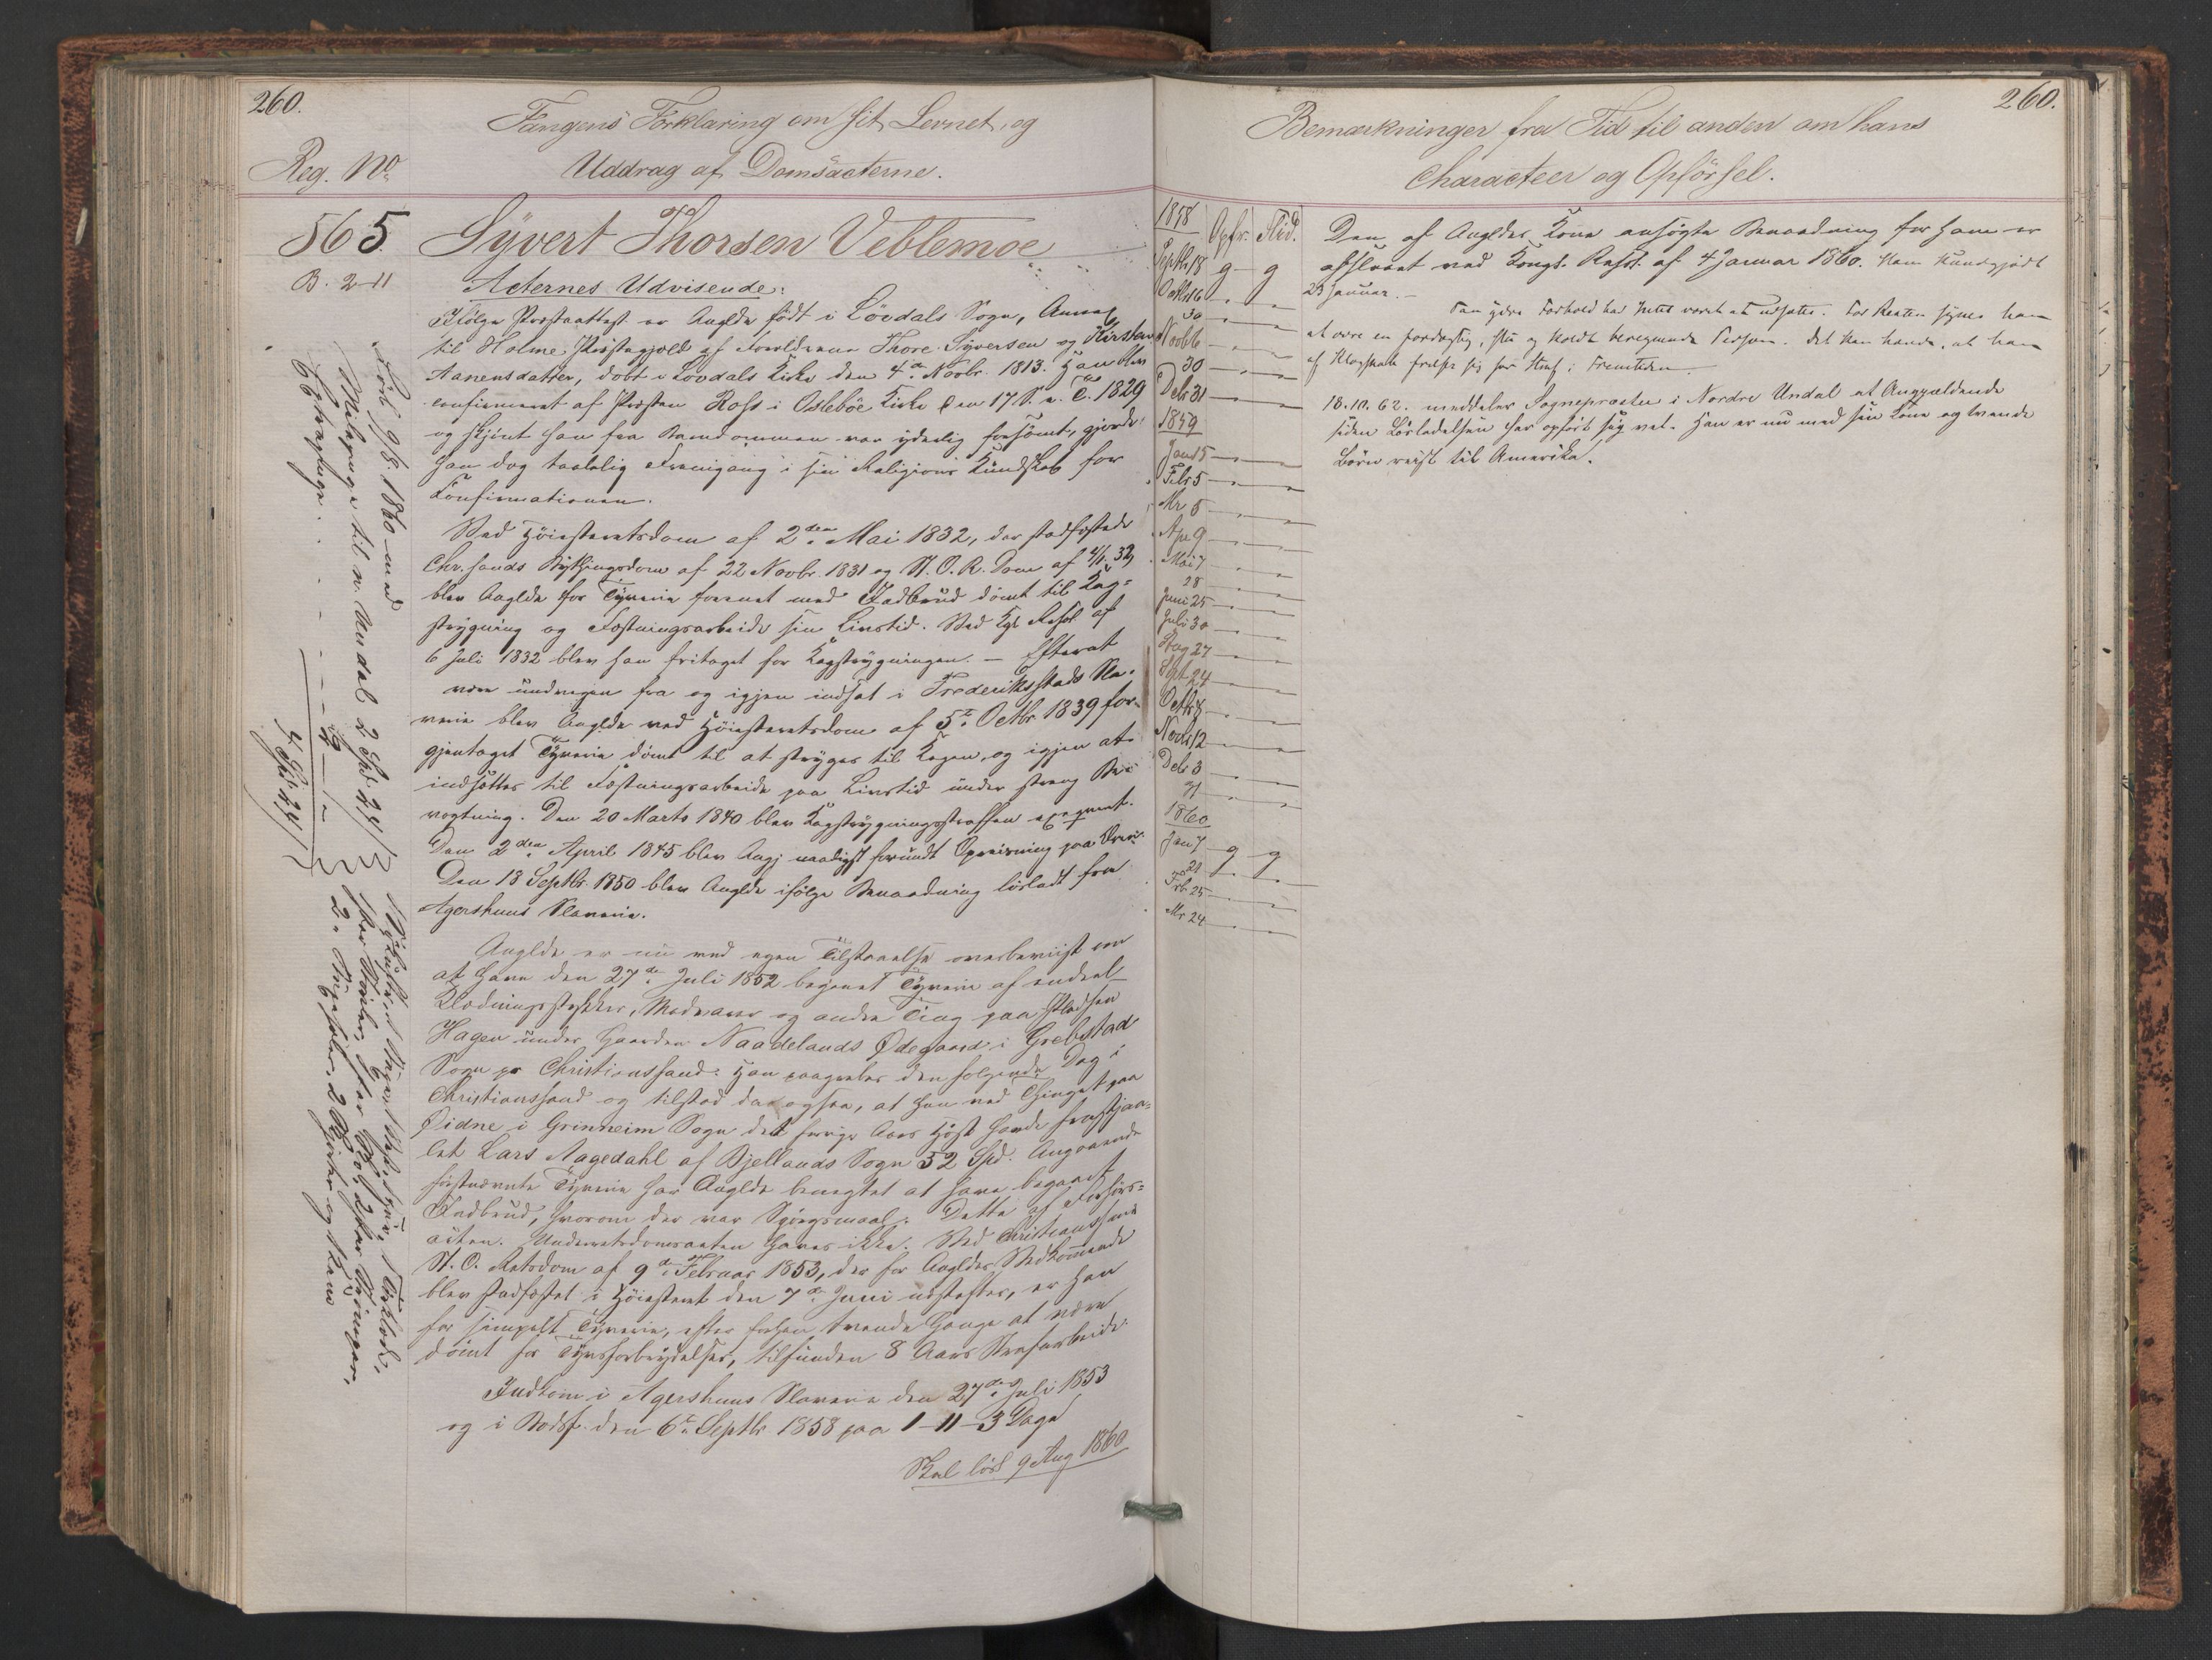 260.
Fangens Forklaring om sit Levnet, og
Reg. No
Uddrag af Domsacterne.
565.
Syvert Thorsen Veblemoe
B. 2-11
Acternes Udvisende:
Ifölge Præsteattest er Anglde födt i Lövdals Sogn, Annex
til Holme Præstegjeld af Forældrene Thore Syversen og Kirsten
Aanensdatter, döbt i Lövdals Kirke den 4de Novbr. 1813. Han blev
confirmeret af Præsten Ross i Osleböe Kirke den 17 S. e. T. 1829
og skjönt han fra Barndommen var yderlig forsömt, gjorde
han dog taalelig Fremgang i sin Religions Kundskab for
Confirmationen.
Ved Höiesteretsdom af 2den Mai 1832, der stadfæstede
Chr.sands Bythingsdom af 22 Novbr. 1831 og St. O. R. Dom af 32
blev Anglde for Tyverie forenet med Indbrud dömt til Kag-
strygning og Fæstningsarbeide sin Livstid. Ved Kgl Resol. af
6 Juli 1832 blev han fritaget for Kagstrygningen. — Efterat
være undvegen fra og igjen indsat i Frederiksstads Sla-
verie blev Anglde ved Höiesteretsdom af 5te Octbr 1839 for
gjentaget Tyverie dömt til at stryges til Kagen, og igjen at
indsættes til Fæstningsarbeide paa Livstid under streng Be-
vogtning. Den 20 Marts 1840 blev Kagstrygningsstraffen exeqveret.
Den 2den April 1845 blev Angj naadigst forundt Opreisning paa Ære.
Den 13 Septbr. 1850 blev Anglde ifölge Benaadning lösladt fra
Agershuus Slaverie.
Anglde er nu ved egen Tilstaaelse overbeviist om
at have den 27de Juli 1852 begaaet Tyverie af endeel
Klædningsstykker, Madvarer og andre Ting paa Pladsen
Hagen under Gaarden Naadelands Ødegaard i Grebstad
Sogn pr Christianssand. Han paagrebes den fölgende Dag i
Christianssand og tilstod da ogsaa, at han ved Thinget paa
Øidne i Grinneim Sogn det forrige Aars Höst havde frastjaa-
let Lars Aagedahl af Bjellands Sogn 52 Spd. Angaaende
förstnævnte Tyverie har Anglde benegtet at have begaaet
Indbrud, hvorom der var Spörgsmaal. Dette af Forhörs-
acten. Underretsdomsacten haves ikke. Ved Christianssands
St. O. Retsdom af 9de Februar 1853, der for Angldes Vedkommende
blev stadfæstet i Höiesteret den 7de Juni næstefter, er han
for simpelt Tyverie, efter forhen tvende Gange at være
dömt for Tyvsforbrydelser, tilfunden 8 Aars Strafarbeide.
Indkom i Agershuus Slaverie den 27de Juli 1853
og i Bodsf. den 6te Septbr 1858 paa 1-11-3 Dage
Skal lös 9 Aug 1860
Lösl. 9/8. 1860 med
Milepenge til n. Undal 2 Spd.
4 Spd.
260.
Bemærkninger fra Tid til anden om hans
Characteer og Opförsel.
1858 Opfr. Flid.
Septbr 18 g g
Octbr 16
30
Novbr 6
30
Debr 31
1859
Jan 15
Febr 5
Mr 5
Apr 9
Mai 7
28
Juni 25
Juli 30
Aug 27
Spt 24
Octbr 8
Novbr 12
Debr 3
31
1860
Jan 7 g g
28
Feb 25
Mr 24
Den af Angldes Kone ansögte Benaadning for ham er
afslaaet ved Kongl. Resol. af 4 Januar 1860. Ham kundgjort
23 Januar. —
Paa ydre Forhold har Intet været at udsætte. For Resten synes han
at være en fordægtig, slu og koldt beregnende Person. Det kan hænde, at han
af Klogskab frelser sig for Straf i Fremtiden.
18.10.62. meddeler Sognepræsten i Nordre Undal at Angjældende
siden Lösladelsen har opfört sig vel. Han er nu med sin Kone og tvende
Börn reist til Amerika.